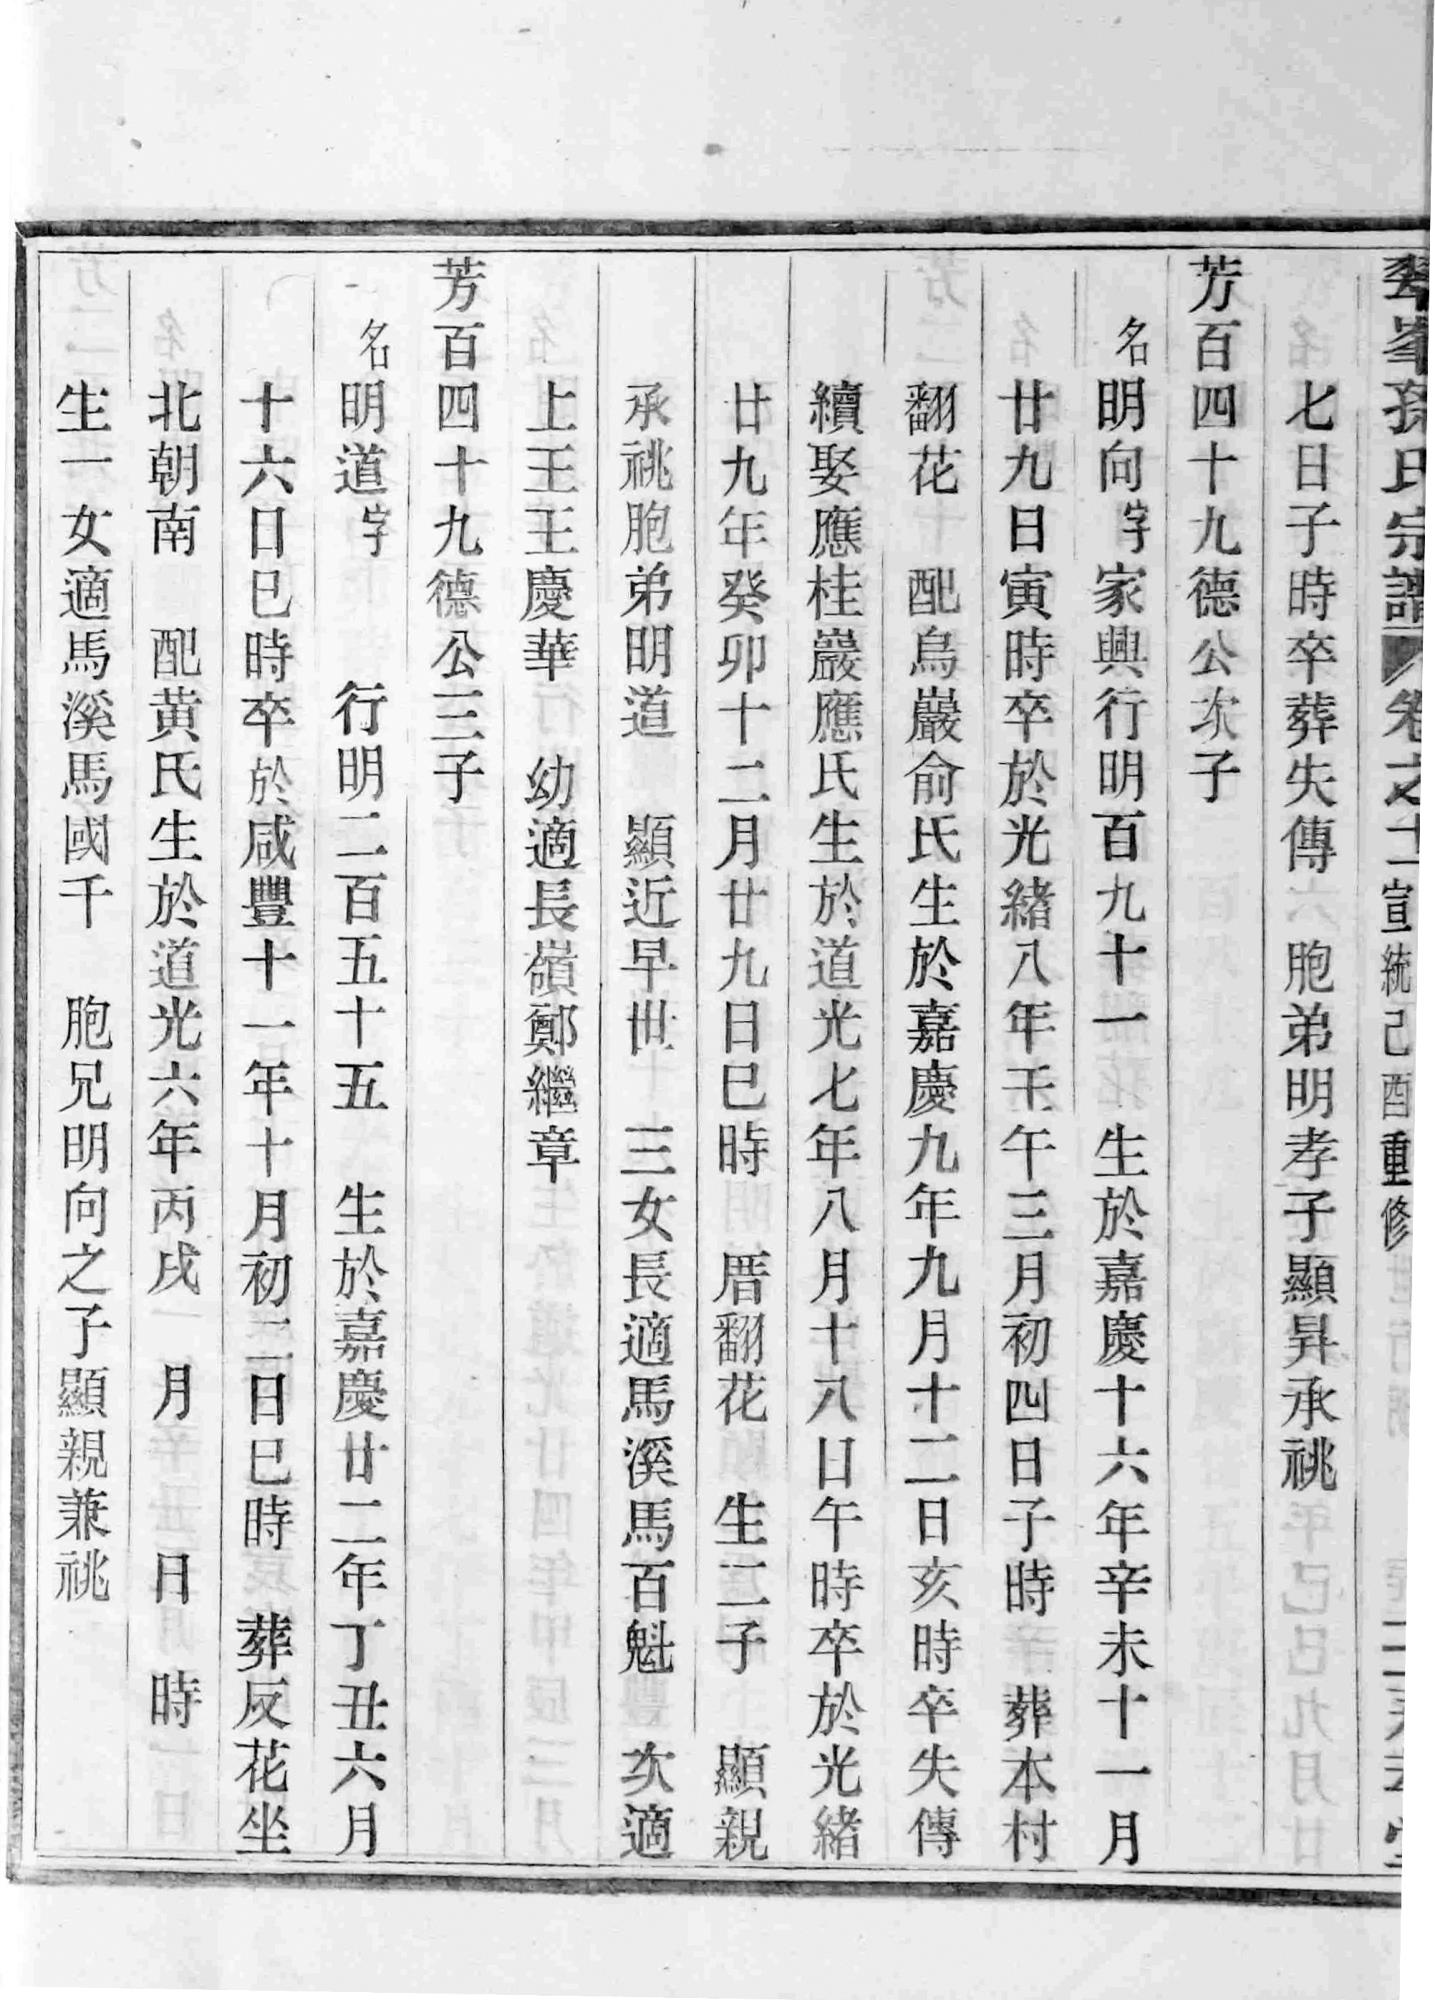 翠峯孫氏宗譜 卷之十一 宣統己酉重修
七日子時卒葬失傳 胞弟明孝子顯昇承祧
芳百四十九德公次子
名明向字家興行明百九十一 生於嘉慶十六年辛未十一月
廿九日寅時卒於光緒八年壬午三月初四日子時 葬本村
翻花 配烏巖俞氏生於嘉慶九年九月十二日亥時卒失傳
續娶應桂巖應氏生於道光七年八月十八日午時卒於光緒
廿九年癸卯十二月廿九日巳時 厝翻花 生二子 顯親
承祧胞弟明道 顯近早世 三女長適馬溪馬百魁 次適
上王王慶華 幼適長嶺鄭繼章
芳百四十九德公三子
名明道字 行明二百五十五 生於嘉慶廿二年丁丑六月
十六日巳時卒於咸豐十一年十月初二日巳時 葬反花坐
北朝南 配黃氏生於道光六年丙戌 月 日 時
生一女適馬溪馬國千 胞兄明向之子顯親兼祧